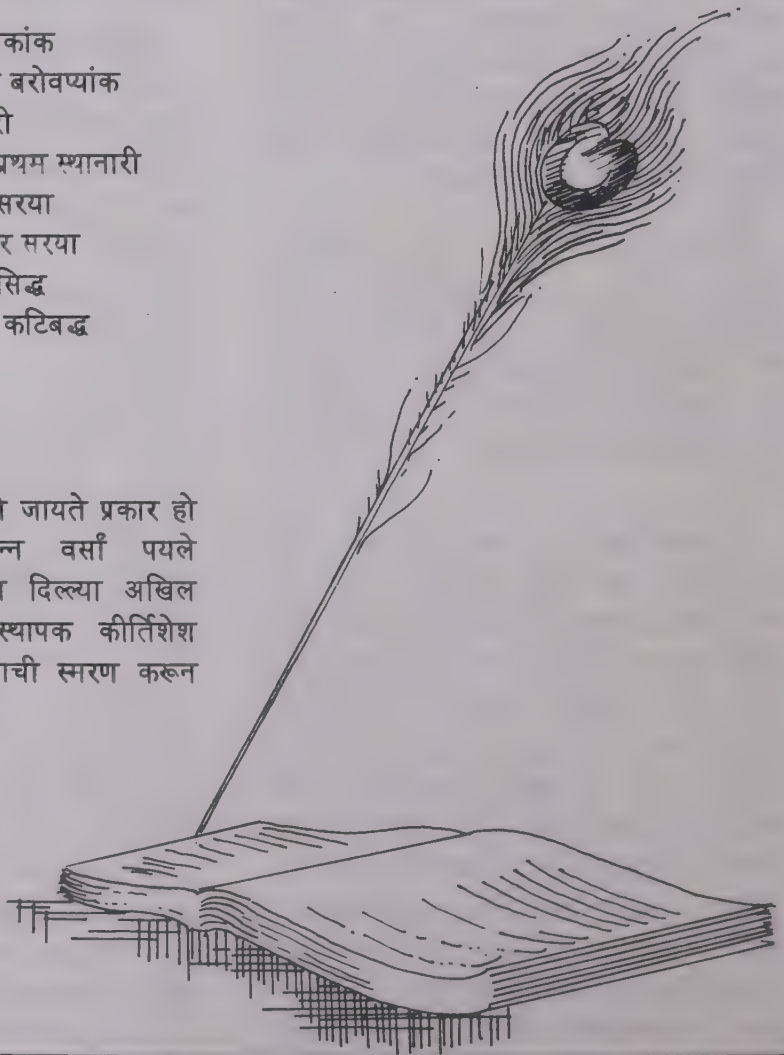 कांक
बरोवप्यांक
री
प्रथम स्थानारी
सरया
र सरया
सिद्ध
कटिबद्ध
जायते प्रकार हो
न्न वर्सां पयले
दिल्ल्या अखिल
स्थापक कीर्तिशेश
ाची स्मरण करून